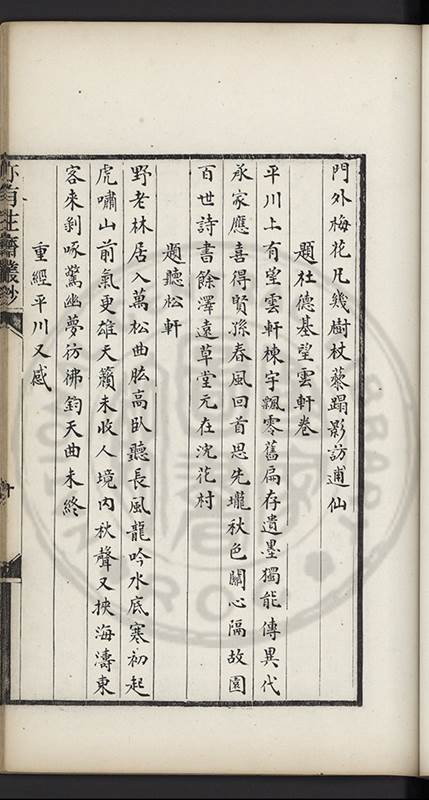 門外梅花凡幾樹杖藜蹋影訪逋仙
題杜德基望雲軒卷
平川上有望雲軒棟宇飄零舊扁存遺墨獨能傳異代
承家應喜得賢孫春風回首思先壠秋色關心隔故園
百世詩書餘澤遠草堂元在浣花村
題聽松軒
野老林居入萬松曲肱高臥聽長風龍吟水底寒初起
虎嘯山前氣更雄天籟未收人境內秋聲又挾海濤東
客來剝啄驚幽夢彷彿鈞天曲未終
重經平川又感
亦有生齋叢鈔